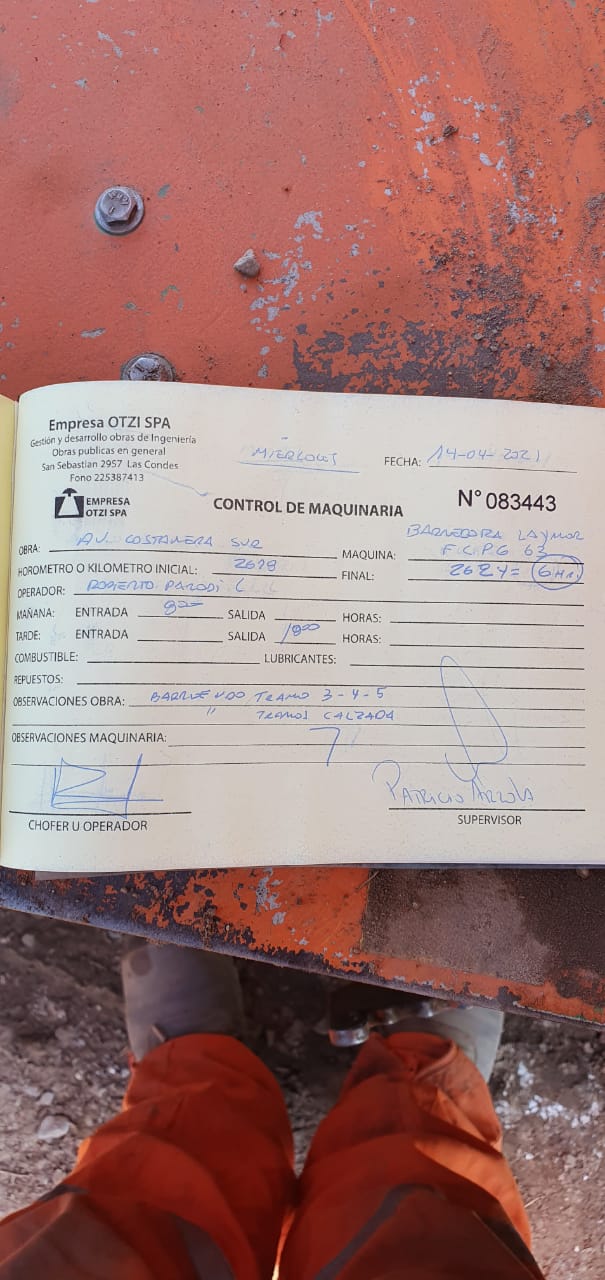 Empresa OTZI SPA
Gestión y desarrollo obras de Ingeniería
Obras publicas en general
San Sebastian 2957 Las Condes
Fono 225387413
MIERCOLES
FECHA: 14-04-2021
EMPRESA
OTZI SPA
CONTROL DE MAQUINARIA
N° 083443
OBRA: AV. COSTANERA SUR
MAQUINA: BARREDORA LAYMOR
F.C.P.G 63
HOROMETRO O KILOMETRO INICIAL: 2618
FINAL: 2624 = 6 HRS
OPERADOR: ROBERTO PARODI
MAÑANA: ENTRADA 800 SALIDA HORAS:
TARDE: ENTRADA SALIDA 1800 HORAS:
COMBUSTIBLE: LUBRICANTES:
REPUESTOS:
OBSERVACIONES OBRA: BARRIENDO TRAMO 3-4-5
" TRAMOS CALZADA
OBSERVACIONES MAQUINARIA:
PATRICIO ARZOLA
CHOFER U OPERADOR
SUPERVISOR